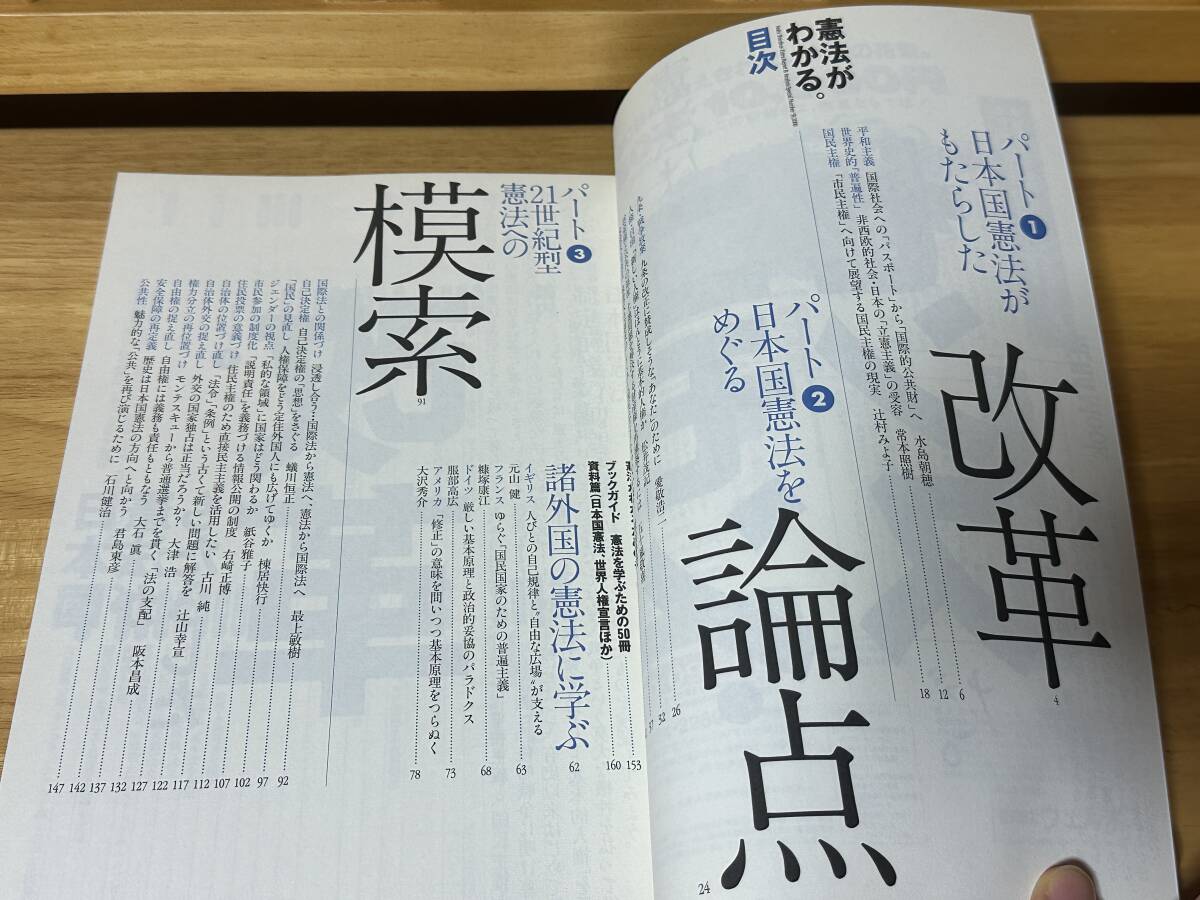 憲法が
わかる。
目次
パート1
日本国憲法が
もたらした
改革
4
平和主義 国際社会への“パスポート”から「国際的公共財」へ 水島朝穂 6
世界史的「普遍性」 非西欧的社会・日本の「立憲主義」の受容 常本照樹 12
国民主権 「市民主権」へ向けて展望する国民主権の現実 辻村みよ子 18
パート2
日本国憲法を
めぐる
論点
24
愛敬浩二 26
32
37
ブックガイド 憲法を学ぶための50冊 153
資料篇(日本国憲法、世界人権宣言ほか) 160
諸外国の憲法に学ぶ 62
イギリス 人びとの自己規律と“自由な広場”が支える
元山 健 63
フランス ゆらぐ「国民国家のための普遍主義」
糠塚康江 68
ドイツ 厳しい基本原理と政治的妥協のパラドクス
服部高広 73
アメリカ 「修正」の意味を問いつつ基本原理をつらぬく
大沢秀介 78
パート3
21世紀型
憲法への
模索
91
国際法との関係づけ 浸透し合う…国際法から憲法へ、憲法から国際法へ 最上敏樹 92
自己決定権 自己決定権の「思想」をさぐる 蟻川恒正 97
「国民」の見直し 人権保障をどう定住外国人にも広げてゆくか 棟居快行 102
ジェンダーの視点 「私的な領域」に国家はどう関わるか 紙谷雅子 107
市民参加の制度化 「説明責任」を義務づける情報公開の制度 右崎正博 112
住民投票の意義づけ 住民主権のため直接民主主義を活用したい 古川 純 117
自治体の位置づけ直し 「法令」「条例」という古くて新しい問題に解答を 辻山幸宣 122
自治体外交の捉え直し 外交の国家独占は正当だろうか? 大津 浩 127
権力分立の再位置づけ モンテスキューから普通選挙までを貫く「法の支配」 阪本昌成 132
自由権の捉え直し 自由権には義務も責任もともなう 大石 眞 137
安全保障の再定義 歴史は日本国憲法の方向へと向かう 君島東彦 142
公共性 魅力的な「公共」を再び演じるために 石川健治 147